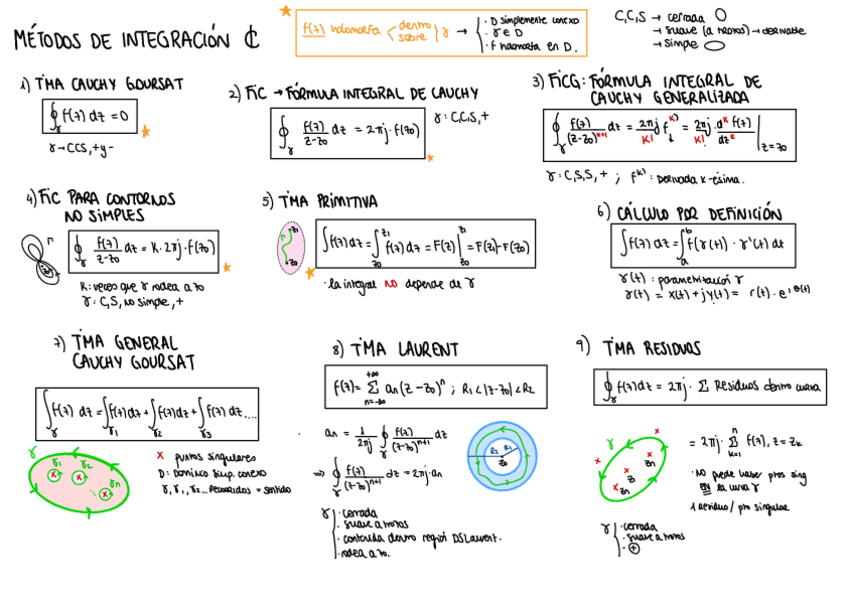 MÉTODOS DE INTEGRACIÓN ℂ
f(z) holomorfa < dentro sobre } γ →
· D simplemente conexo
· γ ∈ D
· f holomorfa en D.
C,C,S → cerrada
→ suave (a trozos) → derivable
→ simple
1) TMA CAUCHY GOURSAT
∮γ f(z) dz = 0
γ → CCS, + y -
2) FIC → FÓRMULA INTEGRAL DE CAUCHY
∮γ f(z)/(z-z0) dz = 2πj · f(z0)
γ : C,C,S, +
3) FICG: FÓRMULA INTEGRAL DE
CAUCHY GENERALIZADA
∮γ f(z)/(z-z0)^(k+1) dz = 2πj/k! f^(k) = 2πj/k! · d^k f(z)/dz^k | z=z0
γ : C,S,S, + ; f^(k) : Derivada k-ésima.
4) FIC PARA CONTORNOS
NO SIMPLES
∮γ f(z)/(z-z0) dz = k · 2πj · f(z0)
k: veces que γ rodea a z0
γ : C,S, no simple, +
5) TMA PRIMITIVA
∫ f(z) dz = ∫z0^z1 f(z) dz = F(z) |z0^z1 = F(z1) - F(z0)
· la integral NO depende de γ
6) CÁLCULO POR DEFINICIÓN
∫ f(z) dz = ∫a^b f(γ(t)) · γ'(t) dt
γ(t) : parametrización γ
γ(t) = x(t) + jy(t) = r(t) · e^jθ(t)
7) TMA GENERAL
CAUCHY GOURSAT
∫γ f(z) dz = ∫γ1 f(z) dz + ∫γ2 f(z) dz + ∫γ3 f(z) dz ....
γ
γ1 γ2 γn
x puntos singulares
D: Dominio simp. conexo
γ, γ1, γ2 ... recorridos = sentido
8) TMA LAURENT
f(z) = Σ n=-∞ +∞ an (z-z0)^n ; R1 < |z-z0| < R2
an = 1/2πj ∮γ f(z)/(z-z0)^(n+1) dz
⇒ ∮γ f(z)/(z-z0)^(n+1) dz = 2πj · an
R2 R1
z0
γ
· cerrada
· suave a trozos
· contenida dentro región DSLaurent.
· rodea a z0.
9) TMA RESIDUOS
∮γ f(z) dz = 2πj · Σ Residuos dentro curva
= 2πj · Σ k=1 n f(z), z = zk
· NO puede haber ptos sing
EN la curva γ
1 residuo / pto singular
γ
· cerrada
· suave a trozos
· +